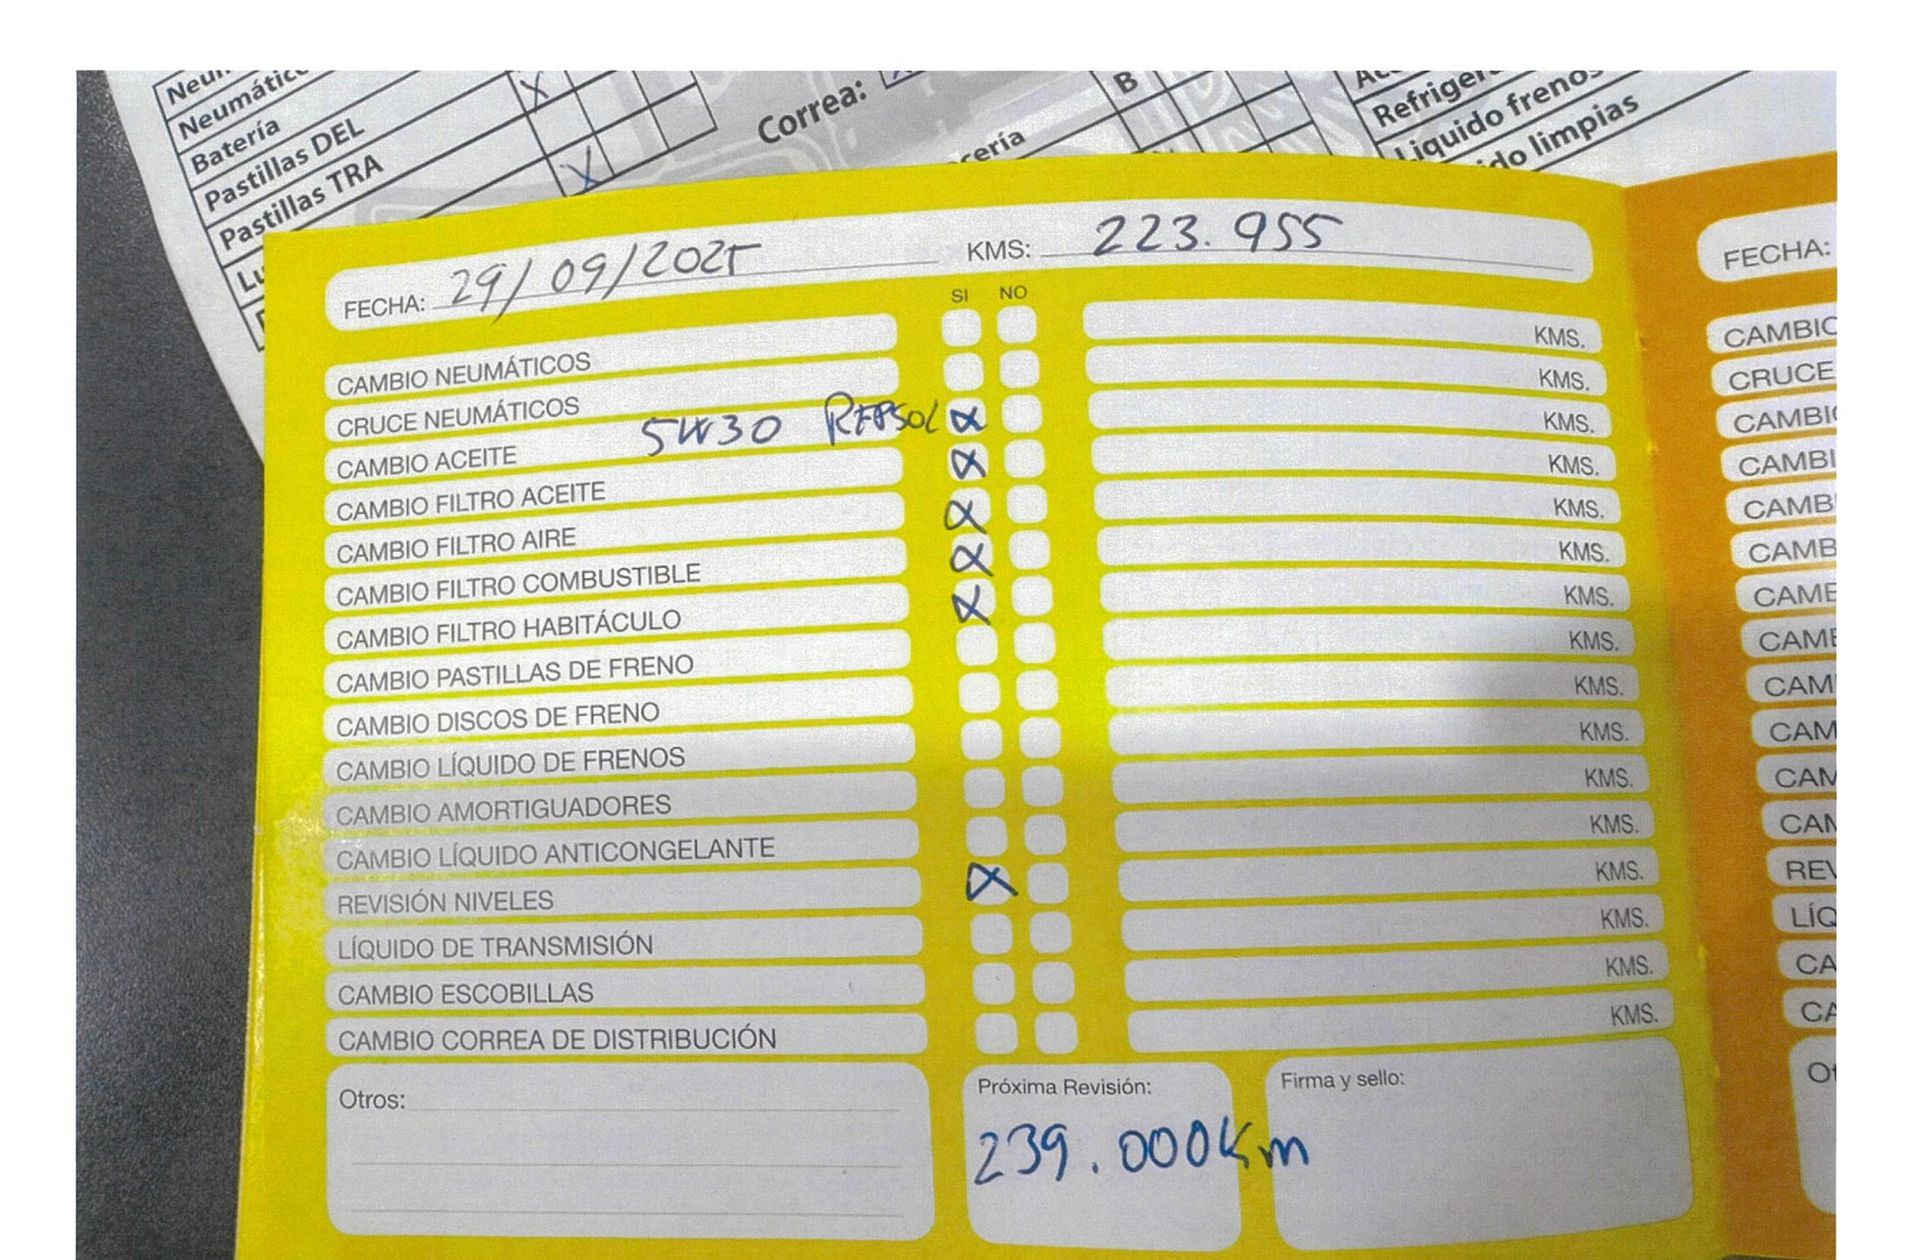 Neumático
Batería
Pastillas DEL X
Pastillas TRA X
Correa:
B
cería
Refriger
Liquido frenos
do limpias
FECHA: 29/09/2025 KMS: 223.955
SI NO
CAMBIO NEUMÁTICOS KMS.
CRUCE NEUMÁTICOS KMS.
CAMBIO ACEITE 5W30 REPSOL X KMS.
CAMBIO FILTRO ACEITE X KMS.
CAMBIO FILTRO AIRE X KMS.
CAMBIO FILTRO COMBUSTIBLE X KMS.
CAMBIO FILTRO HABITÁCULO X KMS.
CAMBIO PASTILLAS DE FRENO KMS.
CAMBIO DISCOS DE FRENO KMS.
CAMBIO LÍQUIDO DE FRENOS KMS.
CAMBIO AMORTIGUADORES KMS.
CAMBIO LÍQUIDO ANTICONGELANTE KMS.
REVISIÓN NIVELES X KMS.
LÍQUIDO DE TRANSMISIÓN KMS.
CAMBIO ESCOBILLAS KMS.
CAMBIO CORREA DE DISTRIBUCIÓN KMS.
Otros:
Próxima Revisión:
239.000Km
Firma y sello:
FECHA:
CAMBIO
CRUCE
CAMBIO
CAMBI
CAMB
CAMB
CAMB
CAMB
CAM
CAM
CAM
CAM
REV
LÍQ
CA
CA
Ot